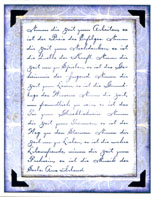 Nimm dir Zeit zum Arbeiten es
ist der Preis des Erfolges Nimm
dir Zeit zum Nachdenken es ist
die Quelle der Kraft Nimm dir
Zeit zum Spielen es ist das
der Jugend Nimm dir
Zeit zum Lesen es ist die
lage des Wissens Nimm dir Zeit,
um freundlich zu sein es ist das
Tor zum Nimm
dir Zeit zum Träumen es ist der
Weg zu den Sternen Nimm dir
Zeit zum Lieben es ist die wahre
Lebensfreude Nimm dir Zeit zum
es ist die Musik der
Seele Aus Irland